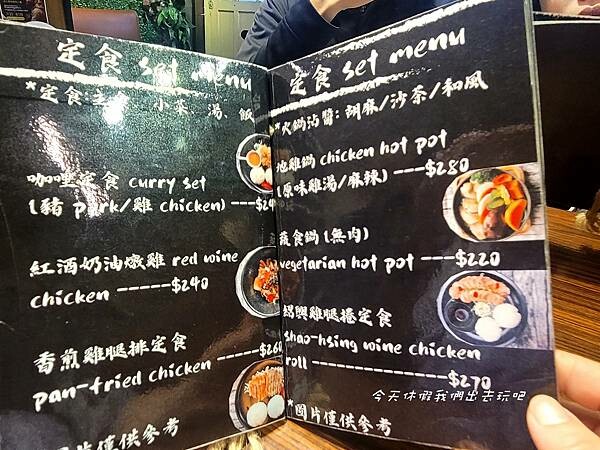 定食 set menu
*定食
小菜、湯、飯
咖哩定食 curry set
(豬 pork/雞 chicken) ---$24
紅酒奶油燉雞 red wine
chicken -----$240
香煎雞腿排定食
pan-fried chicken -----$260
*圖片僅供參考
定食 set menu
*火鍋沾醬:胡麻/沙茶/和風
地雞鍋 chicken hot pot
(原味雞湯/麻辣) ---$280
蔬食鍋 (無肉)
vegetarian hot pot ---$220
紹興雞腿捲定食
shao-hsing wine chicken
roll ---------------$270
*圖片僅供參考
今天休假我們出去玩吧